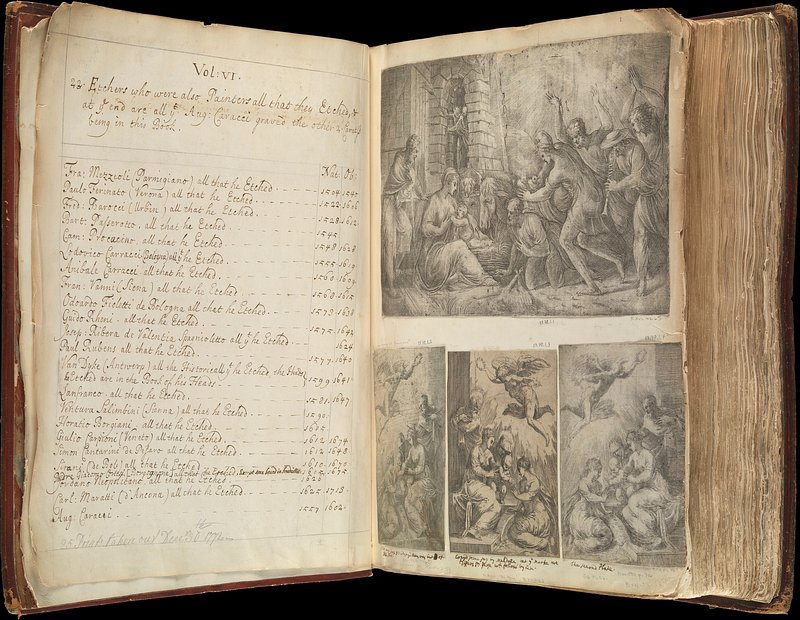 Vol: VI.
22. Etchers who were also Painters all that they Etched, &
at yͤ end are all yͤ Aug: Caracci graved the other
being in this Book.
Nat: Ob:
Fra: Mezzioli (Parmigiano) all that he Etched. 1504 1540
Paulo Ferinato (Verona) all that he Etched. 1522 1606
Fred: Barocci (Urbin) all that he Etched. 1528 1612
Bart: Passerotto, all that he Etched.
Cam: Procacino, all that he Etched. 1548 1628
Lodovico Carracci (Bologna) all yͤ he Etched. 1555 1619
Anibale Carracci, all that he Etched. 1560 1609
Fran: Vanni (Siena) all that he Etched. 1568 1615
Odoardo Fioletti de Bologna all that he Etched. 1573 1638
Guido Rheni. all that he Etched. 1575 1642
Josep: Ribera de Valentia Spaniolett0 all yͤ he Etched. 1624
Paul Rubens all that he Etched. 1577 1640
Van Dyke (Antwerp) all the Historicall yͤ he Etched the Heads
he Etched are in the Book of his Heads. 1599 1641
Lanfranco. all that he Etched. 1581 1647
Ventura Salimbini (Sienna) all that he Etched. 1590
Horatio Borgiani, all that he Etched. 1615
Giulio Carpioni (Veneto) all that he Etched. 1611 1674
Simon Cantarini de Pesaro all that he Etched. 1612 1648
Sirani (de Bol:) all that he Etched. 1610 1670
Jordano Neopolitano all that he Etched. 1626
Carl: Maratti (d'Ancona) all that he Etched. 1625 1713
Aug: Caracci. 1557 1602
25 Prints taken out Decᵇ 30ᵗʰ 1772
The second Plate